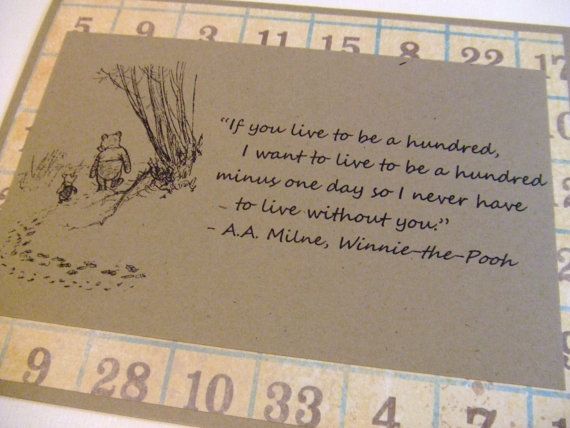 5 9 3 11 15 8 22 17
"If you live to be a hundred,
I want to live to be a hundred
minus one day so I never have
to live without you."
- A.A. Milne, Winnie-the-Pooh
9 28 10 33 4 7